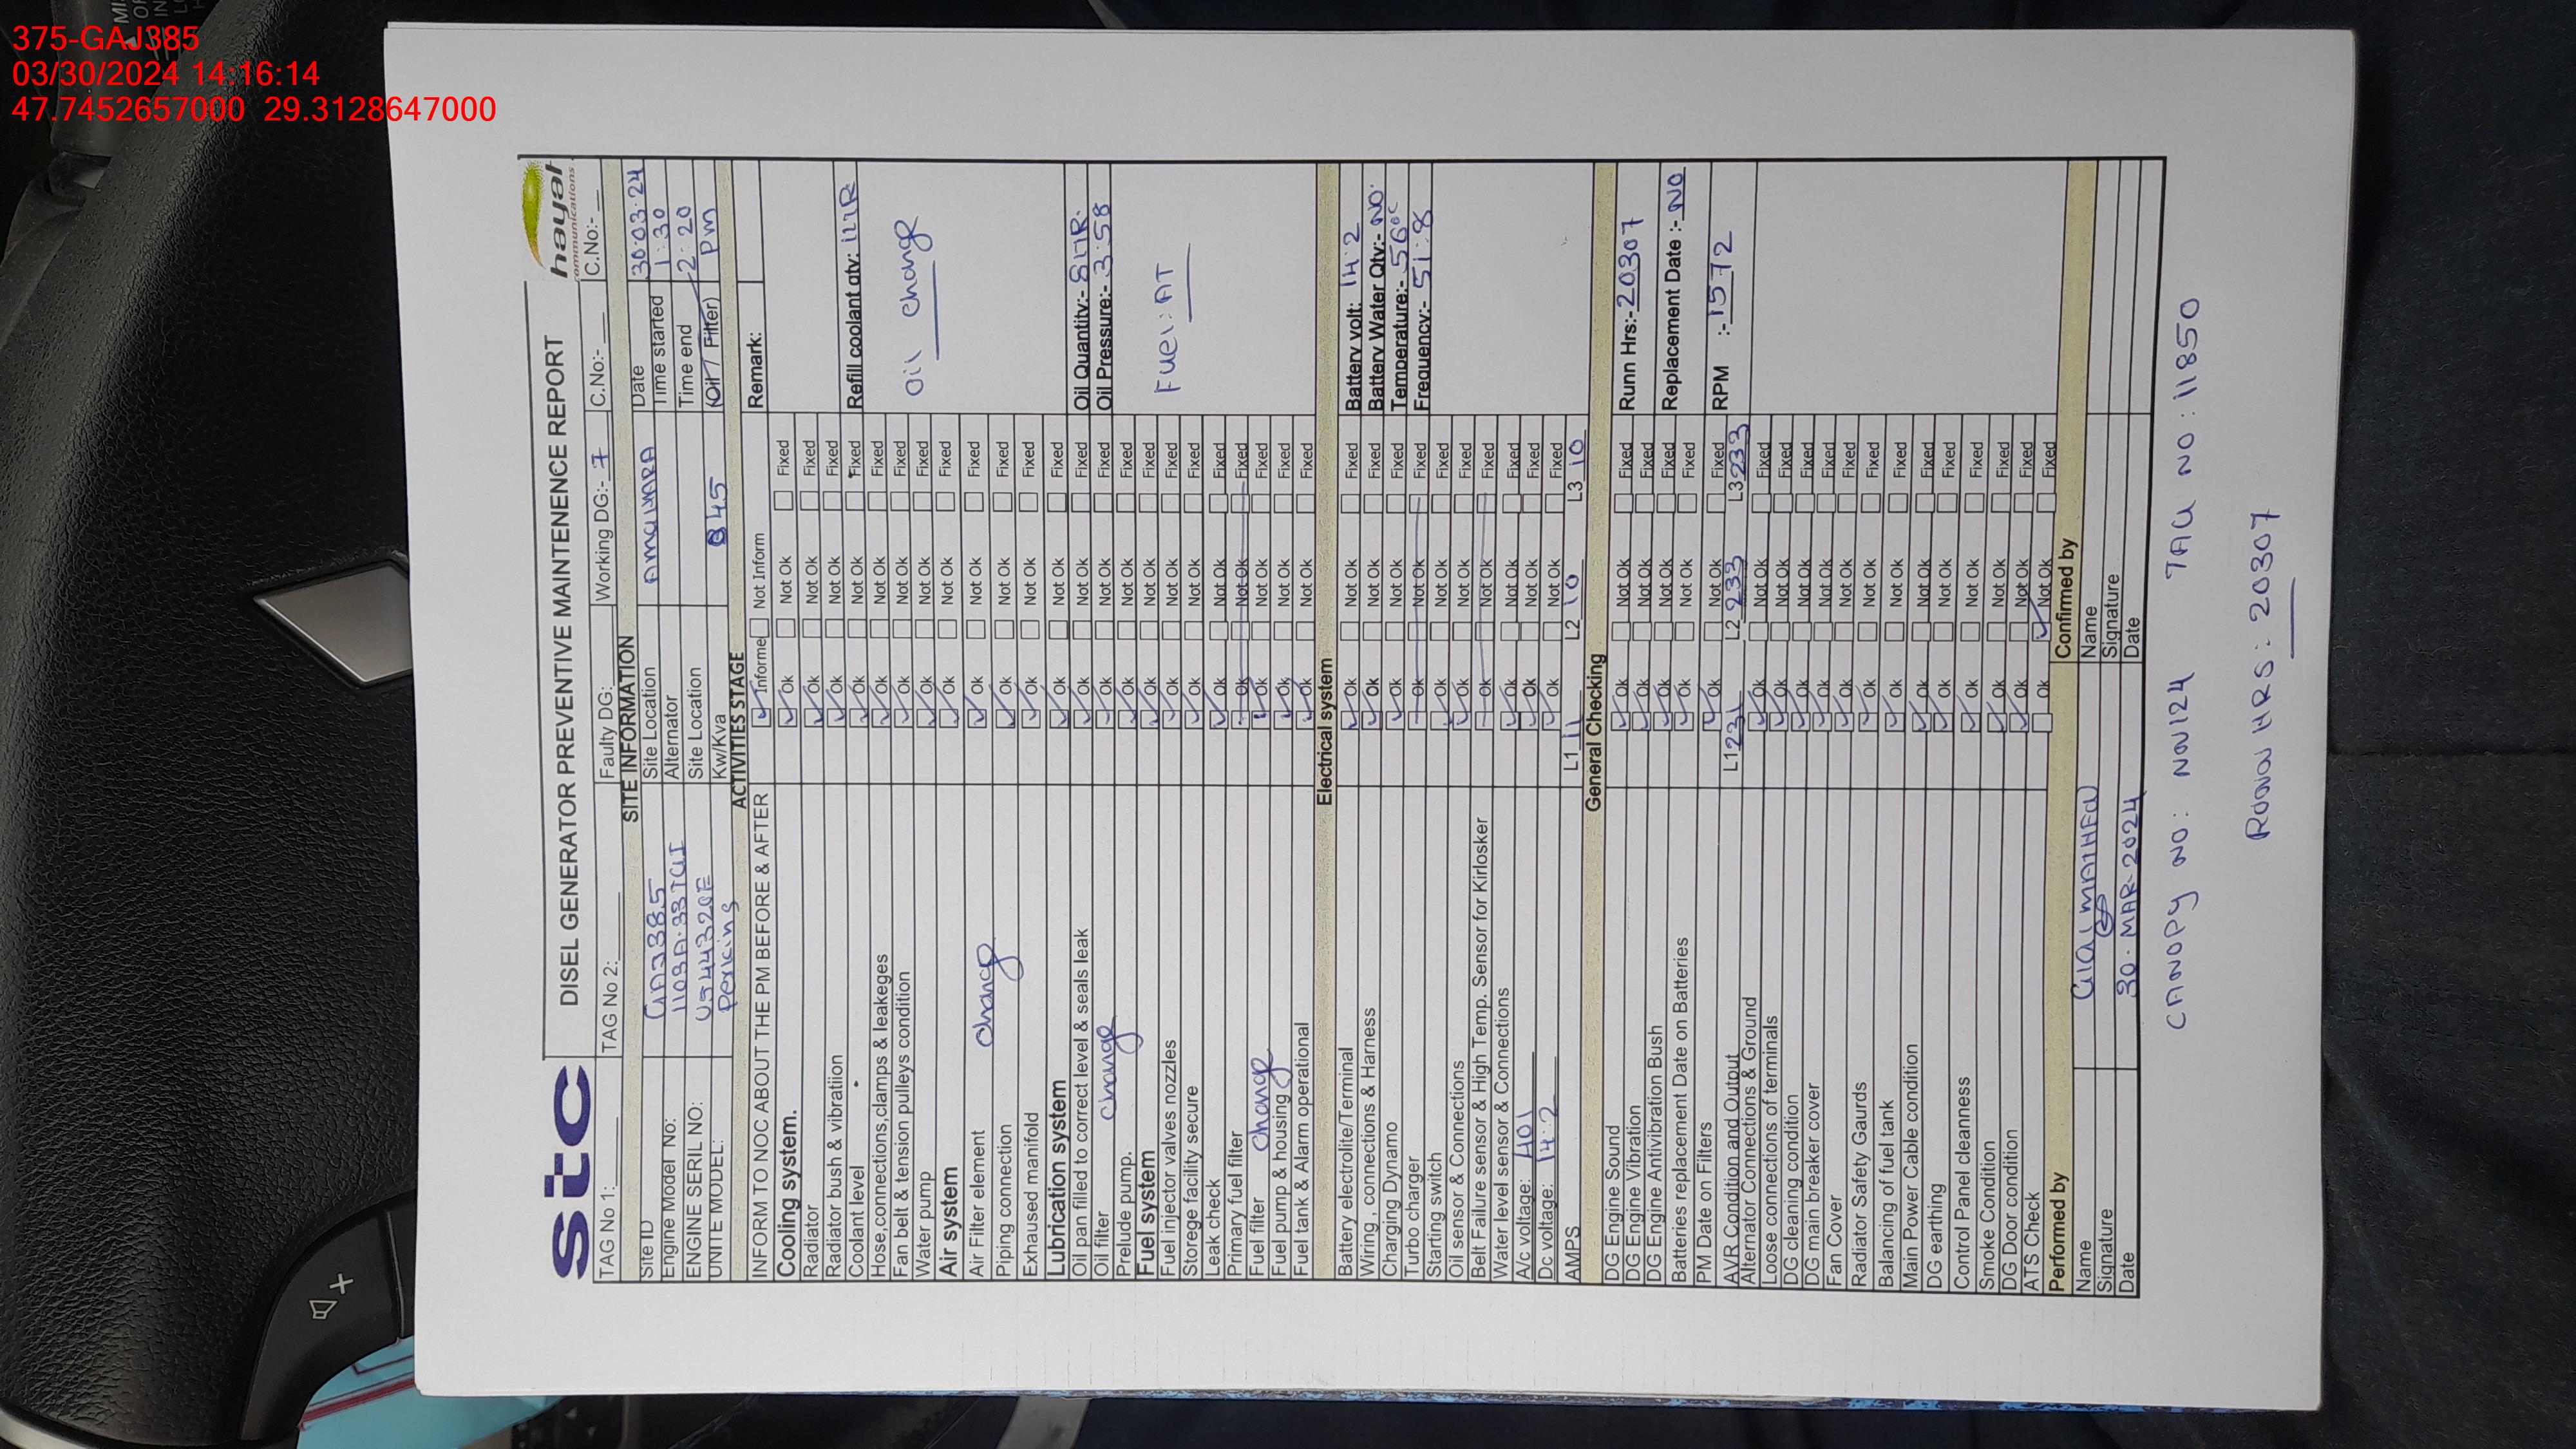 375-GAJ385
03/30/2024 14:16:14
47.7452657000 29.3128647000
stc DISEL GENERATOR PREVENTIVE MAINTENENCE REPORT hayat communications
TAG No 1: TAG No 2: Faulty DG: Working DG:- 7 C.No:- C.No:-
SITE INFORMATION
Site ID GAJ385 Site Location Date 30.03.24
Engine Model No: 1103A.33TGI Alternator Time started 1:30
ENGINE SERIL NO: U544320E Site Location Time end 2:20
UNITE MODEL: Perkins Kw/Kva 845 (Oil / Filter) Pm
ACTIVITIES STAGE
INFORM TO NOC ABOUT THE PM BEFORE & AFTER Informe Not Inform Remark:
Cooling system. Ok Not Ok Fixed
Radiator Ok Not Ok Fixed
Radiator bush & vibratiion Ok Not Ok Fixed
Coolant level Ok Not Ok Fixed Refill coolant qty: 1LTR
Hose,connections,clamps & leakeges Ok Not Ok Fixed
Fan belt & tension pulleys condition Ok Not Ok Fixed
Water pump Ok Not Ok Fixed Oil change
Air system Ok Not Ok Fixed
Air Filter element change Ok Not Ok Fixed
Piping connection Ok Not Ok Fixed
Exhaused manifold Ok Not Ok Fixed
Lubrication system Ok Not Ok Fixed
Oil pan filled to correct level & seals leak Ok Not Ok Fixed Oil Quantity:- 8LTR.
Oil filter change Ok Not Ok Fixed Oil Pressure:- 3.58
Prelude pump. Ok Not Ok Fixed
Fuel system Ok Not Ok Fixed
Fuel injector valves nozzles Ok Not Ok Fixed Fuel: AT
Storege facility secure Ok Not Ok Fixed
Leak check Ok Not Ok Fixed
Primary fuel filter Ok Not Ok Fixed
Fuel filter change Ok Not Ok Fixed
Fuel pump & housing Ok Not Ok Fixed
Fuel tank & Alarm operational Ok Not Ok Fixed
Electrical system
Battery electrolite/Terminal Ok Not Ok Fixed Battery volt: 14.2
Wiring , connections & Harness Ok Not Ok Fixed Battery Water Qty:- NO.
Charging Dynamo Ok Not Ok Fixed Temperature:- 56°C
Turbo charger Ok Not Ok Fixed Frequency:- 51.8
Starting switch Ok Not Ok Fixed
Oil sensor & Connections Ok Not Ok Fixed
Belt Failure sensor & High Temp. Sensor for Kirlosker Ok Not Ok Fixed
Water level sensor & Connections Ok Not Ok Fixed
A/c voltage: 401 Ok Not Ok Fixed
Dc voltage: 14.2 Ok Not Ok Fixed
AMPS L1 11 L2 10 L3 10
General Checking
DG Engine Sound Ok Not Ok Fixed Runn Hrs:- 20307
DG Engine Vibration Ok Not Ok Fixed
DG Engine Antivibration Bush Ok Not Ok Fixed Replacement Date :- NO
Batteries replacement Date on Batteries Ok Not Ok Fixed
PM Date on Filters Ok Not Ok Fixed RPM :- 1572
AVR Condition and Output L1 231 L2 233 L3 233
Alternator Connections & Ground Ok Not Ok Fixed
Loose connections of terminals Ok Not Ok Fixed
DG cleaning condition Ok Not Ok Fixed
DG main breaker cover Ok Not Ok Fixed
Fan Cover Ok Not Ok Fixed
Radiator Safety Gaurds Ok Not Ok Fixed
Balancing of fuel tank Ok Not Ok Fixed
Main Power Cable condition Ok Not Ok Fixed
DG earthing Ok Not Ok Fixed
Control Panel cleanness Ok Not Ok Fixed
Smoke Condition Ok Not Ok Fixed
DG Door condition Ok Not Ok Fixed
ATS Check Ok Not Ok Fixed
Performed by Confirmed by
Name Name
Signature Signature
Date 30.MAR.2024 Date
CANOPY NO: NN124 TAG NO: 11850
RUNN HRS: 20307